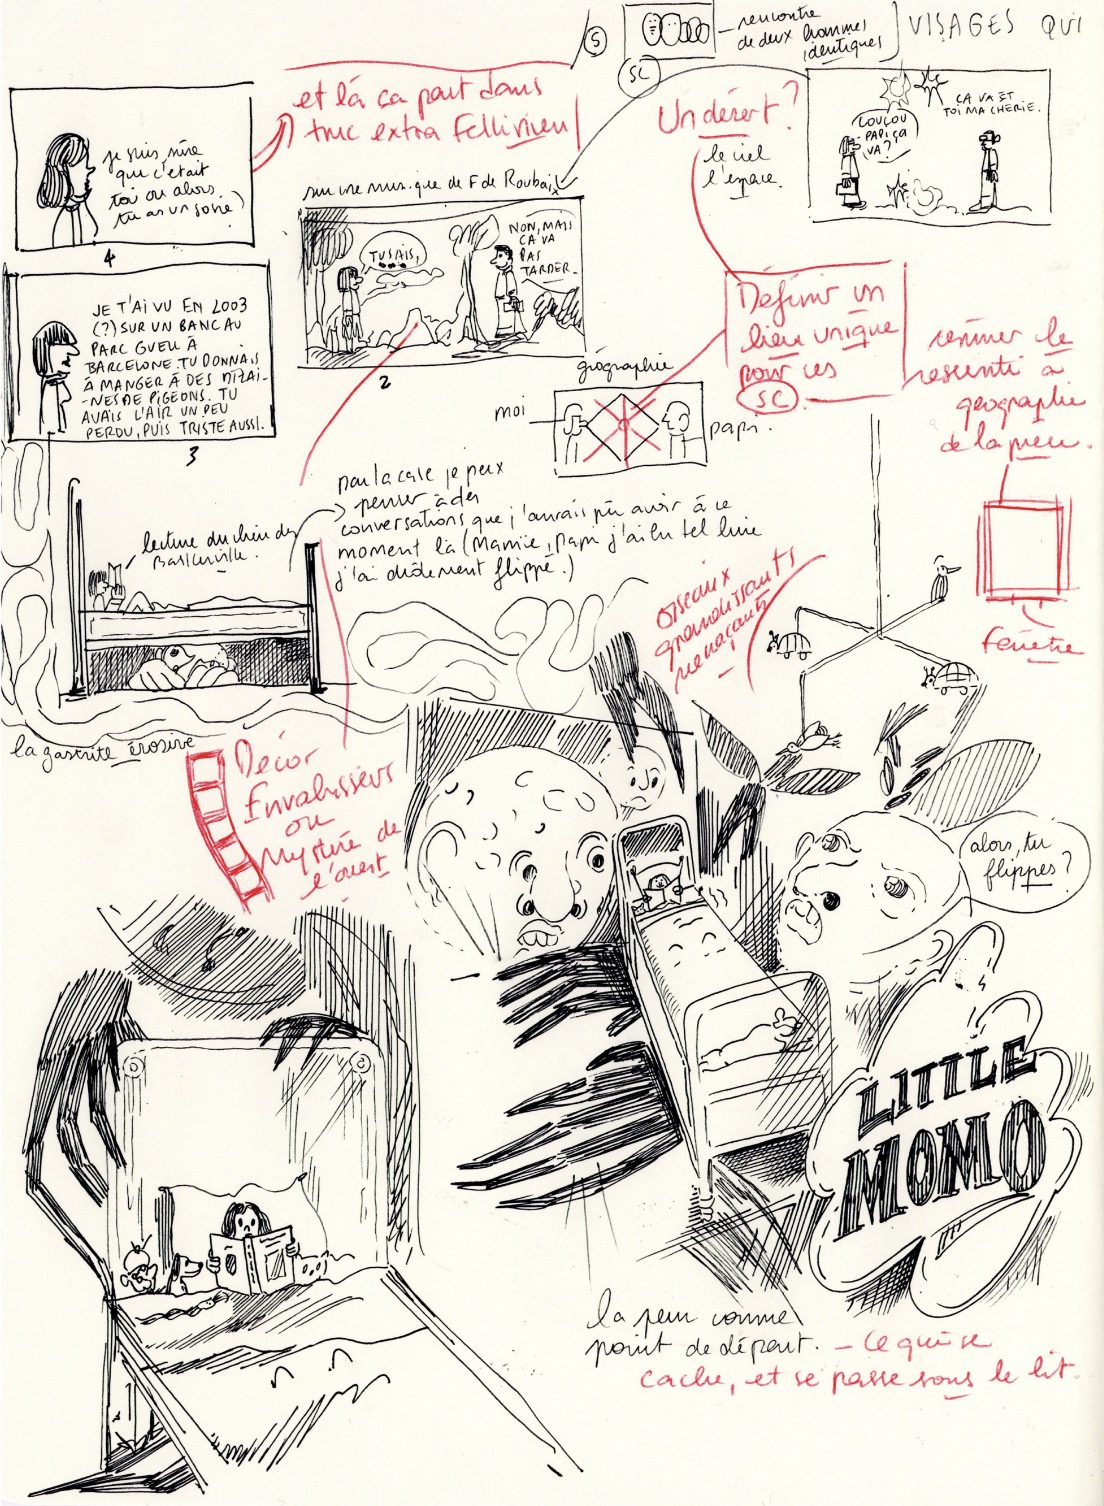 5
rencontre
de deux hommes
identiques
VISAGES QUI
SC
et là ça part dans
truc extra Fellinien
Un désert?
le ciel
l'espace.
COUCOU
PAPI ÇA
VA?
ÇA VA ET
TOI MA CHERIE.
je suis sûre
que c'était
toi ou alors
tu as un sosie
4
sur une musique de F de Roubaix
TU SAIS,
NON, MAIS
ÇA VA
PAS
TARDER.
2
JE T'AI VU EN 2003
(?) SUR UN BANC AU
PARC GUELL À
BARCELONE. TU DONNAIS
À MANGER À DES DIZAI-
NES DE PIGEONS. TU
AVAIS L'AIR UN PEU
PERDU, PUIS TRISTE AUSSI.
3
Définir un
lieu unique
pour ces
SC
géographie
moi
papi.
ressenti à
géographie
de la peur.
fenêtre
pour la case je peux
penser à des
conversations que j'aurais pu avoir à ce
moment là (Mamie, papi j'ai lu tel livre
j'ai drôlement flippé.)
lecture du chien des
Baskerville.
oiseaux
grandissants
menaçants
la gastrite érosive
Décor
Envahisseurs
ou
Mystère de
l'ouest
alors, tu
flippes?
LITTLE
MOMO
la peur comme
point de départ. - Ce qui se
cache, et se passe sous le lit.